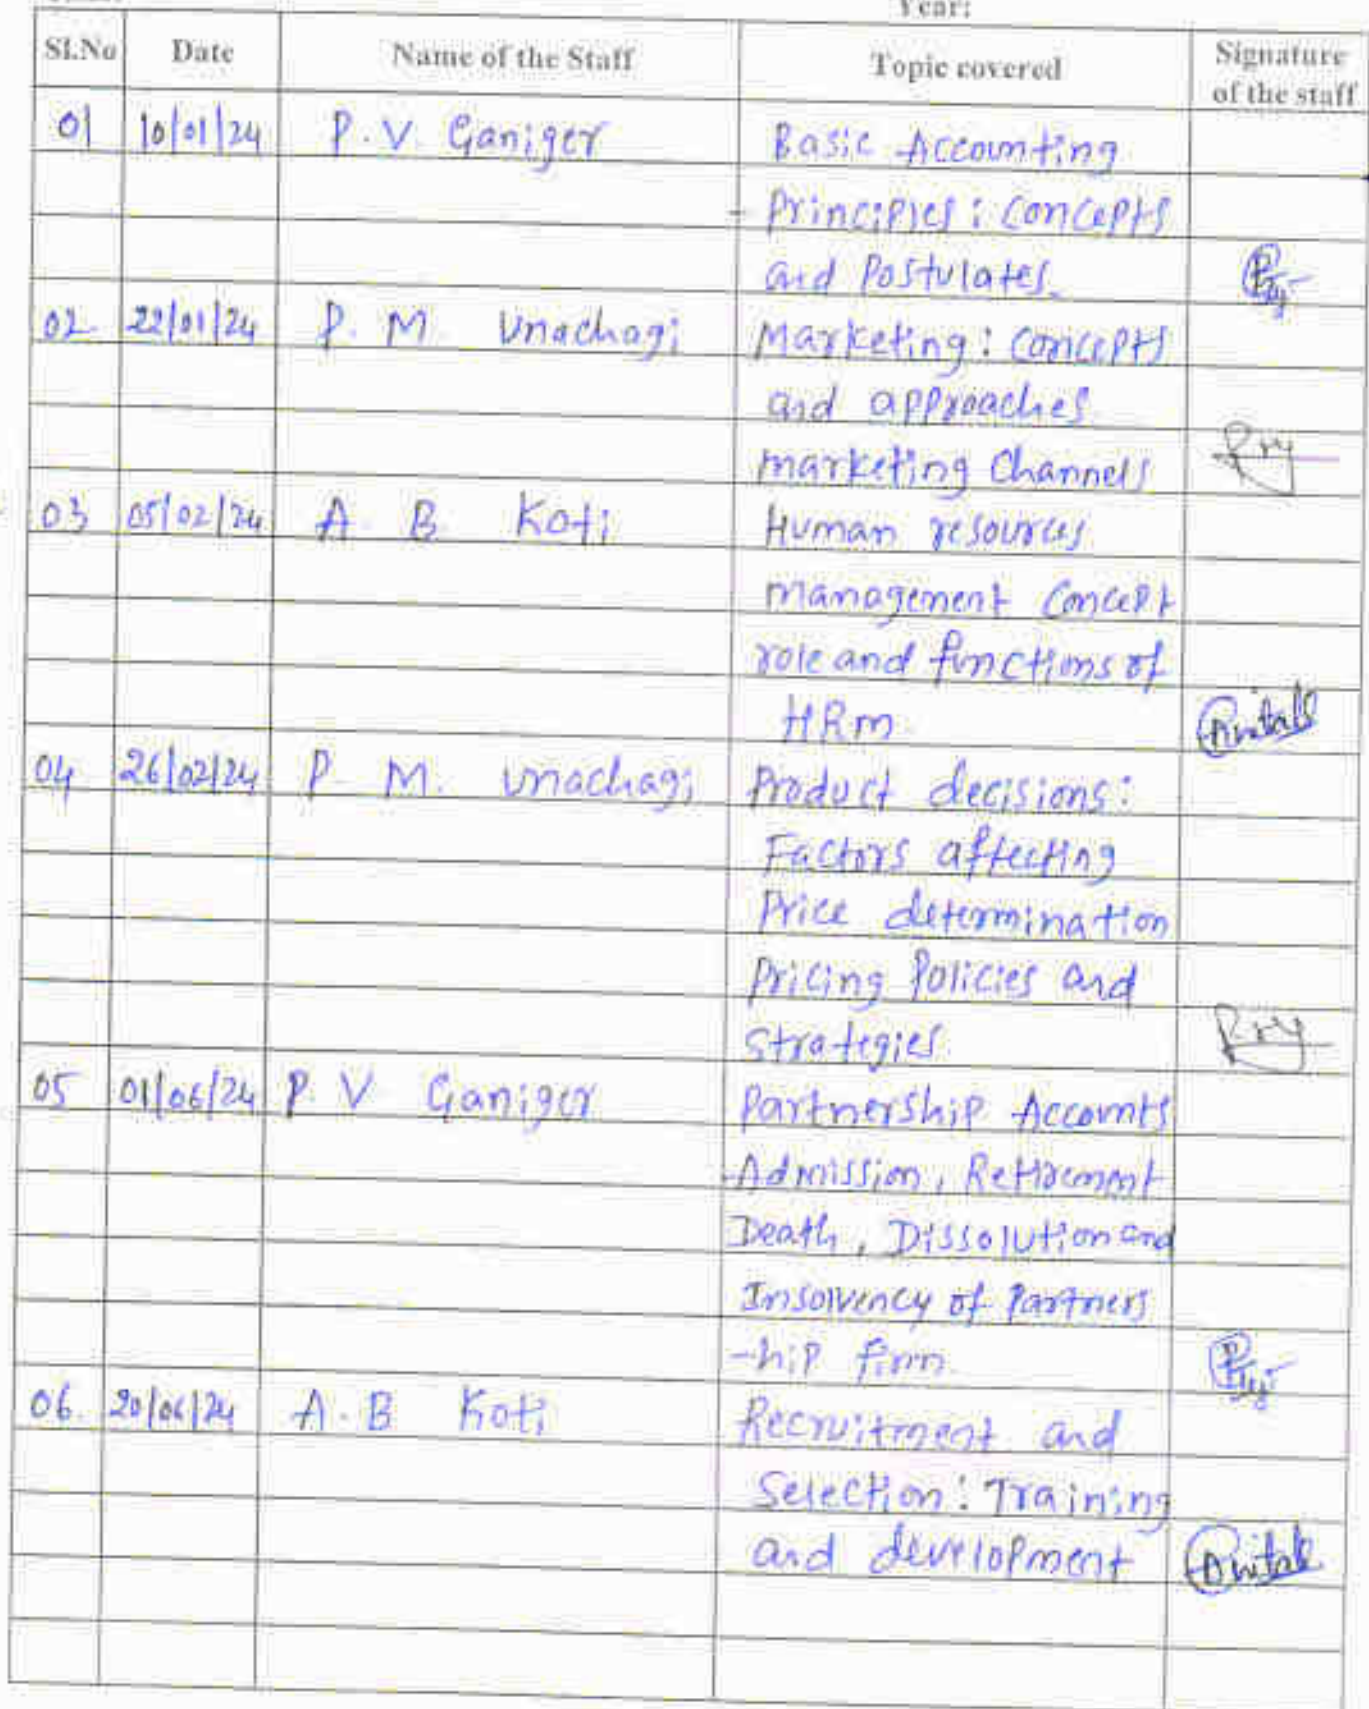 Year:
Sl.No Date Name of the Staff Topic covered Signature of the staff
01 10/01/24 P. V. Ganiger Basic Accounting
- Principles : Concepts
and Postulates.
02 22/01/24 P. M. Unachagi Marketing : Concepts
and approaches
marketing Channels
03 05/02/24 A B Koti Human resources
management Concept
role and functions of
HRM
04 26/02/24 P. M. Unachagi Product decisions :
Factors affecting
Price determination
Pricing Policies and
strategies
05 01/06/24 P. V Ganiger Partnership Accounts
-Admission, Retirement
Death, Dissolution and
Insolvency of Partners
-hip firm.
06. 20/06/24 A. B Koti Recruitment and
Selection : Training
and development